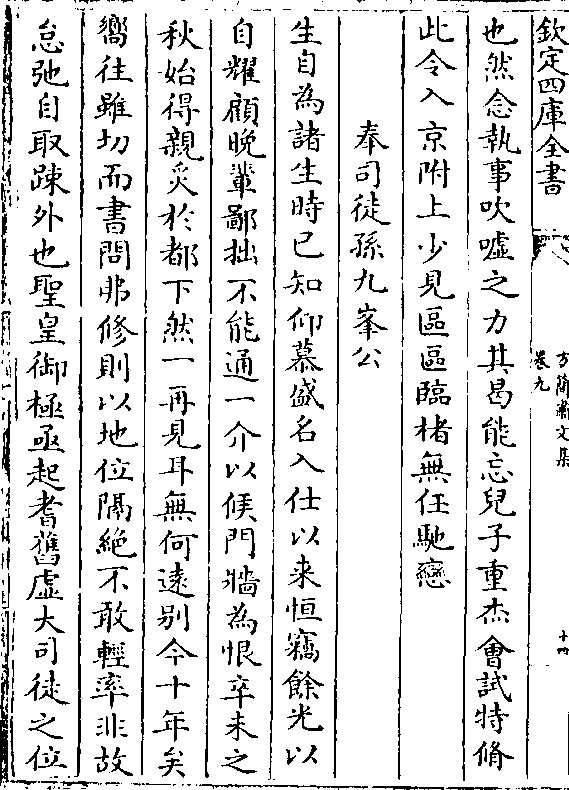 欽定四庫全書
方簡肅文集
卷九
十四
也然念執事吹噓之力其曷能忘兒子重杰會試特脩
此令入京附上少見區區臨楮無任馳戀
奉司徒孫九峯公
生自為諸生時已知仰慕盛名入仕以来恒竊餘光以
自耀顧晚輩鄙拙不能通一介以候門牆為恨辛未之
秋始得親炙於都下然一再見耳無何逺别今十年矣
嚮往雖切而書問弗修則以地位隔絶不敢輕率非故
怠弛自取踈外也聖皇御極亟起耆舊虛大司徒之位